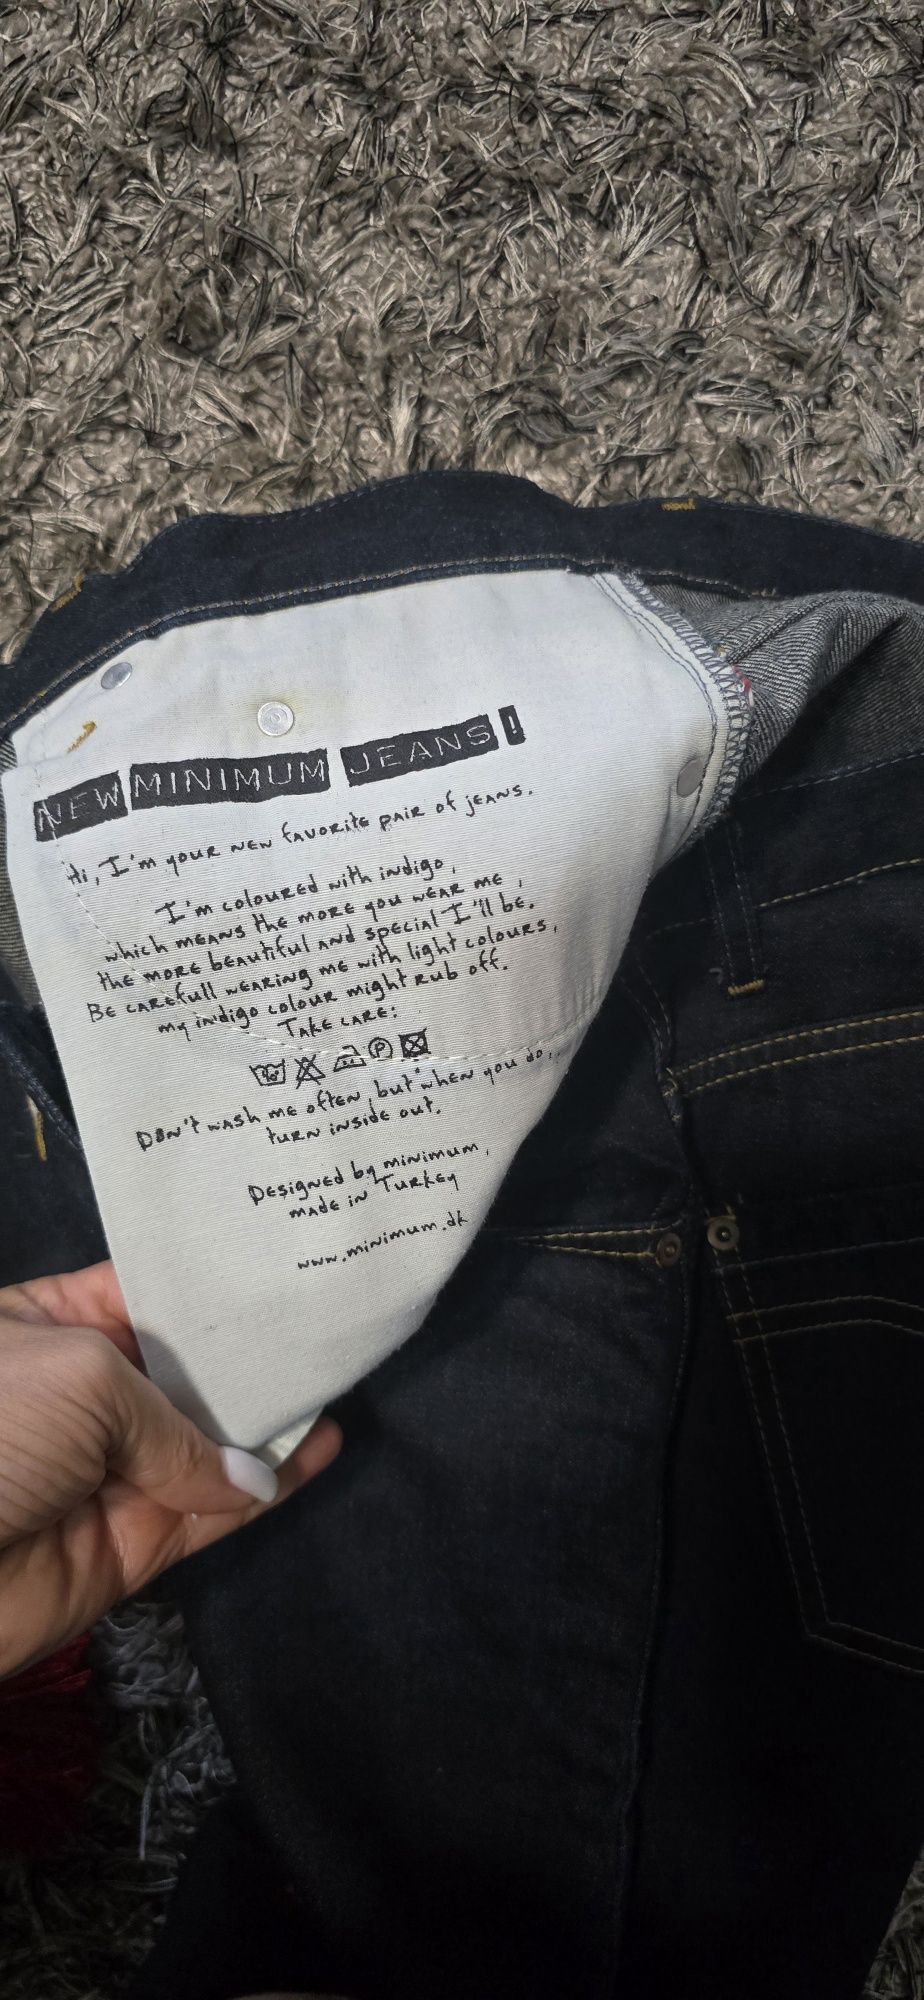 NEW MINIMUM JEANS !
Hi, I'm your new favorite pair of jeans.
I'm coloured with indigo,
which means the more you wear me,
the more beautiful and special I'll be.
Be carefull wearing me with light colours,
my indigo colour might rub off.
Take care:
P
Don't wash me often, but when you do,
turn inside out.
Designed by minimum,
made in Turkey
www.minimum.dk